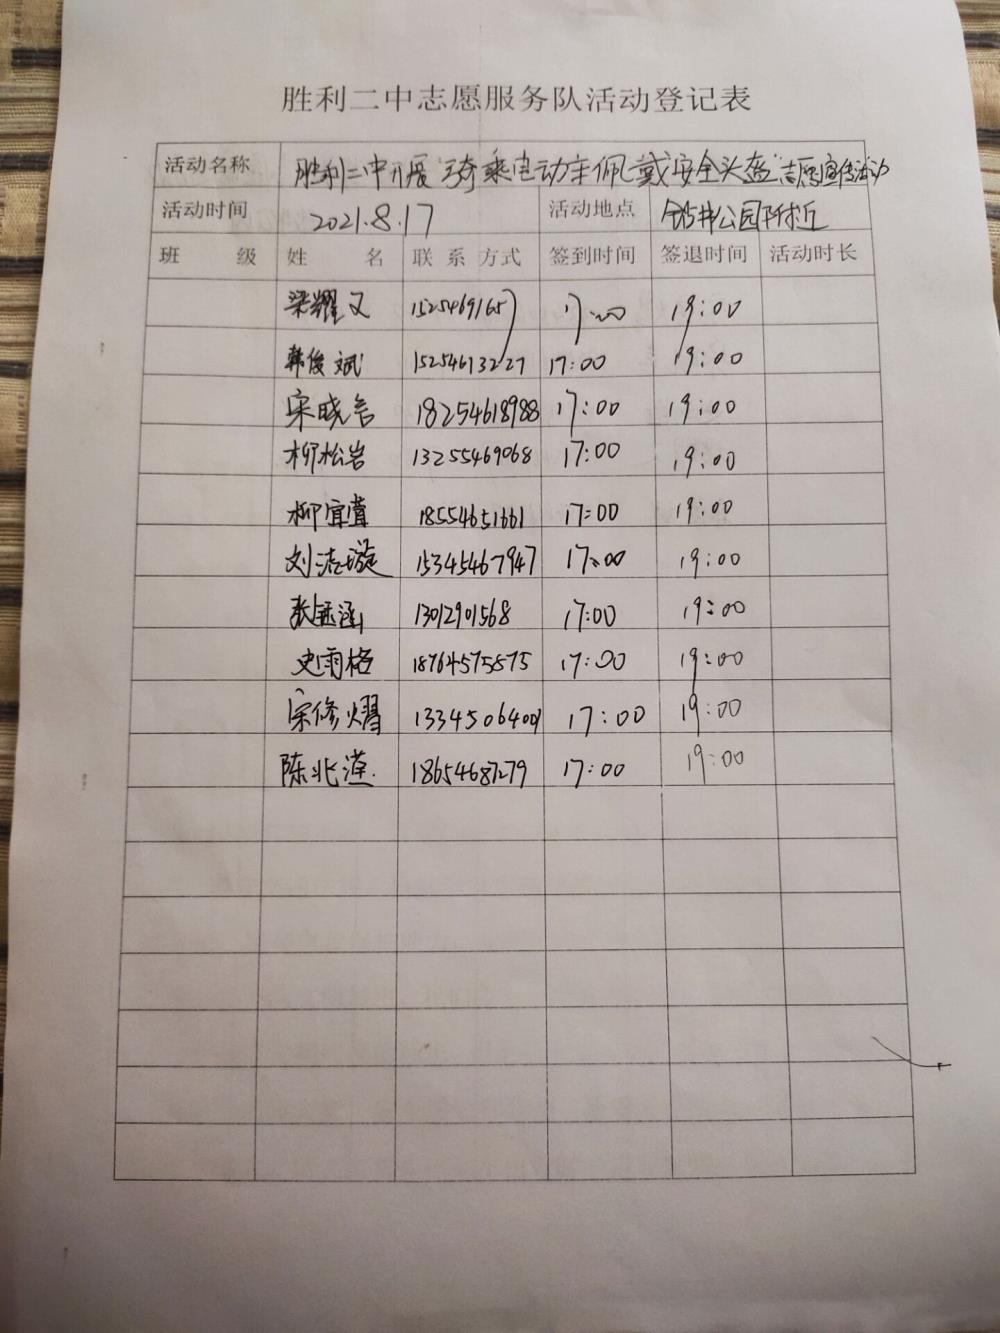 胜利二中志愿服务队活动登记表
活动名称 胜利二中开展"骑乘电动车佩戴安全头盔"志愿宣传活动
活动时间 2021.8.17 活动地点 公园附近
班 级 姓 名 联 系 方式 签到时间 签退时间 活动时长
梁耀又 15254691657 17:00 19:00
韩俊斌 15254613227 17:00 19:00
宋晓 18254618988 17:00 19:00
柳松岩 13255469068 17:00 19:00
柳宜萱 18554651661 17:00 19:00
刘洁璇 15345467947 17:00 19:00
张涵 13012901568 17:00 19:00
史雨格 18764575875 17:00 19:00
宋修熠 13345064001 17:00 19:00
陈兆 18654687279 17:00 19:00